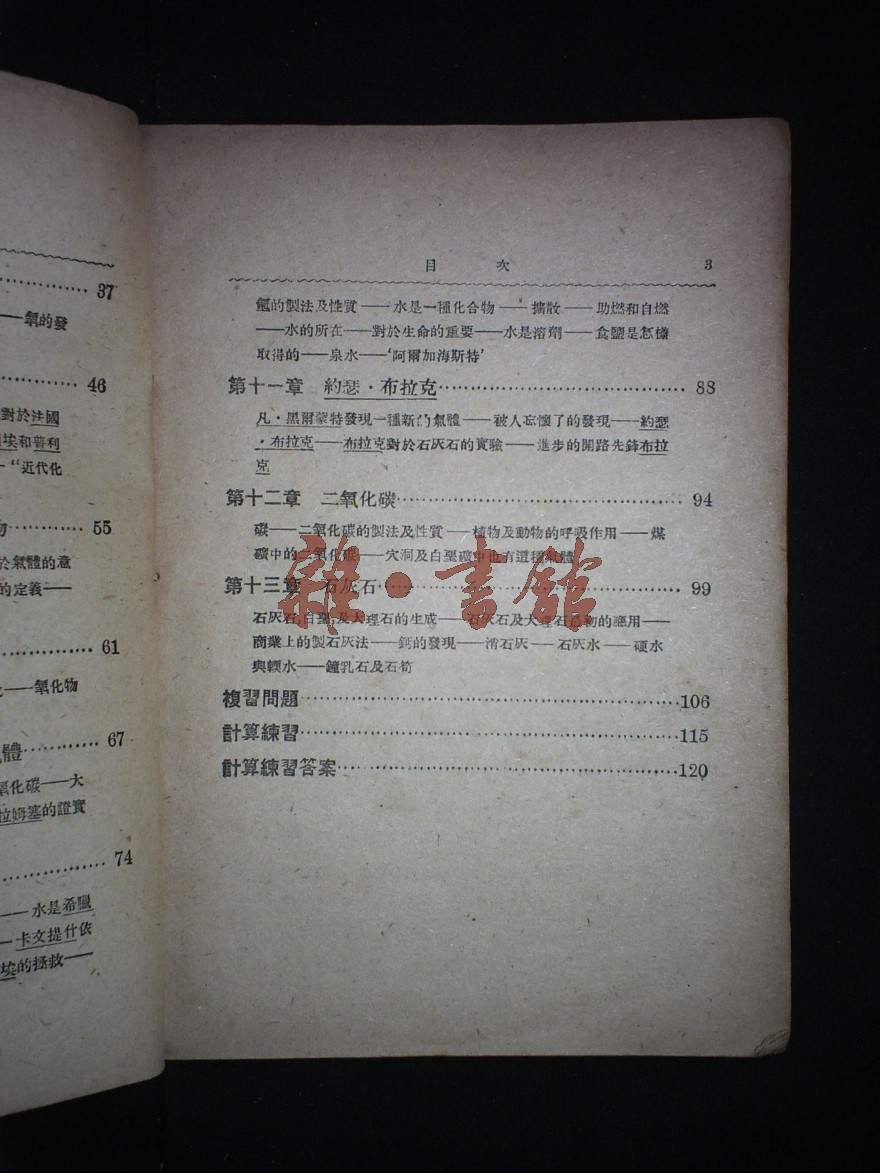 37
氧的發
46
對於法國
埃和普利
“近代化
55
於氣體的意
的定義——
61
——氧化物
體 67
氧化碳——大
拉姆塞的證實
74
——水是希臘
——卡文提什依
埃的拯救——
目 次 3
氫的製法及性質——水是一種化合物——擴散——助燃和自燃
——水的所在——對於生命的重要——水是溶劑——食鹽是怎樣
取得的——泉水——‘阿爾加海斯特’
第十一章 約瑟·布拉克 88
凡·黑爾蒙特發現一種新的氣體——被人忘懷了的發現——約瑟
·布拉克——布拉克對於石灰石的實驗——進步的開路先鋒布拉
克
第十二章 二氧化碳 94
碳——二氧化碳的製法及性質——植物及動物的呼吸作用——煤
礦中的二氧化碳——穴洞及白堊礦中也有這種氣體
第十三章 石灰石 99
石灰石,白堊,及大理石的生成——石灰石及大理石的應用——
商業上的製石灰法——鈣的發現——消石灰——石灰水——硬水
與輭水——鐘乳石及石筍
複習問題 106
計算練習 115
計算練習答案 120
雜·書館